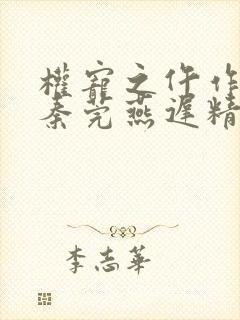 權寵之仵作
秦莞燕遲精
李志華